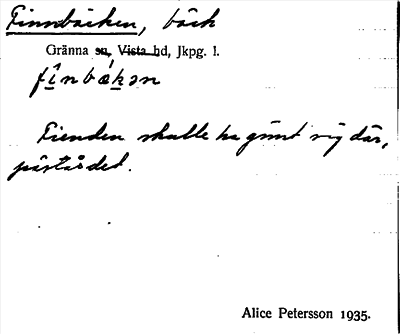 Finnbäcken, bäck
Gränna sn, Vista hd, Jkpg. l.
fìnbǽkən
Fienden skulle ha gömt sig där,
påstås det.
Alice Petersson 1935.